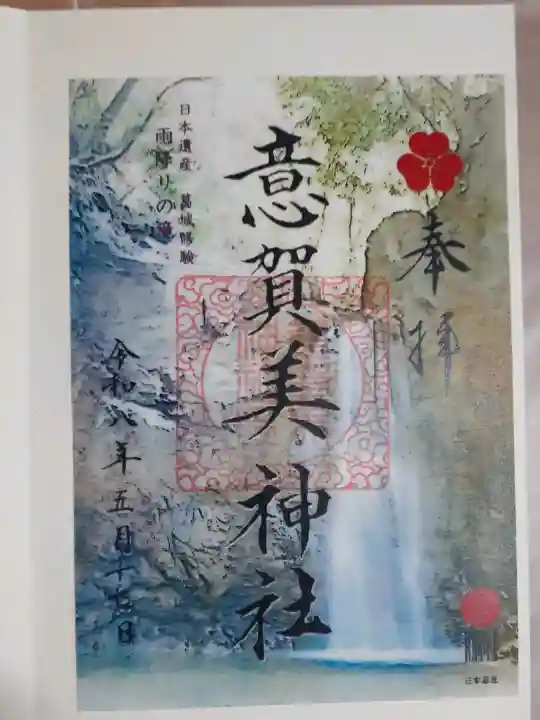 奉拝
意賀美神社
日本遺産 葛城修験
雨降りの滝
令和八年五月十五日
日本遺産